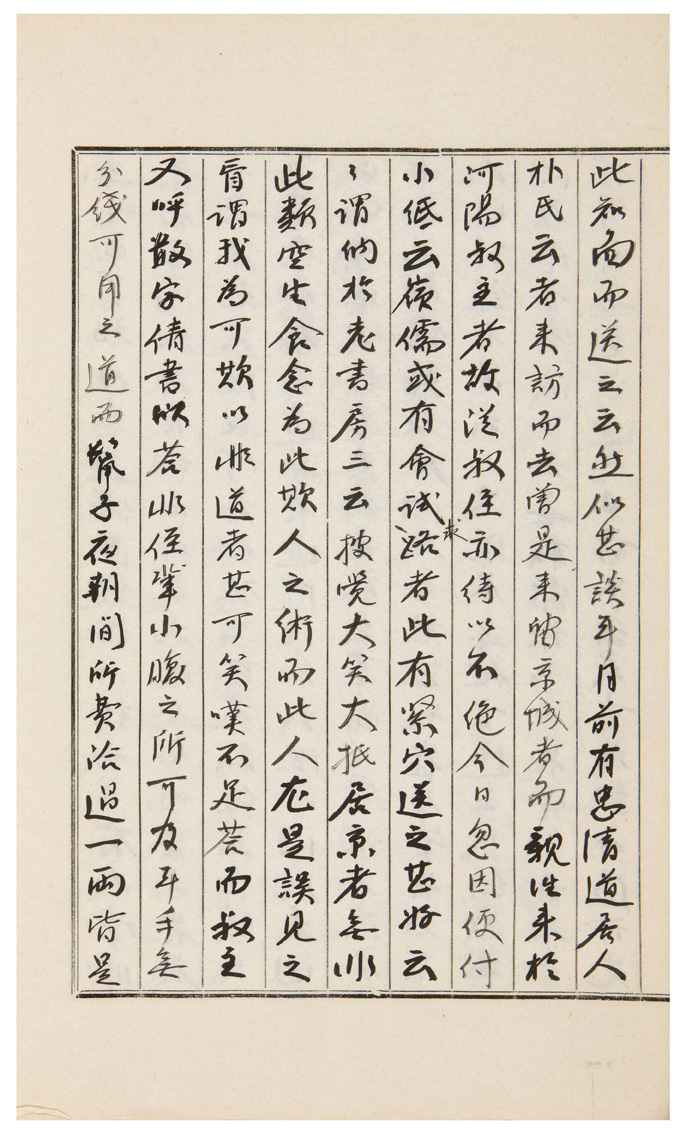 此知面而送之云然似甚誤年月前有忠清道居人
朴氏云者来訪而去曾是来留京城者而親往来於
河陽叔主者故從叔侄亦待以不絶今日忽因便付
小低云嶺儒或有會試求路者此有緊穴送之甚好云
〻謂納於老書房三云披覽大笑大抵居京者無非
此類空生貪念為此欺人之術而此人尤是誤見之
看謂我為可欺以非道者甚可笑嘆不足荅而叔主
又呼散字倩書以荅非侄輩小腹之所可及耳手無
分錢可用之道而鷲子夜朝間所費洽過一兩皆是